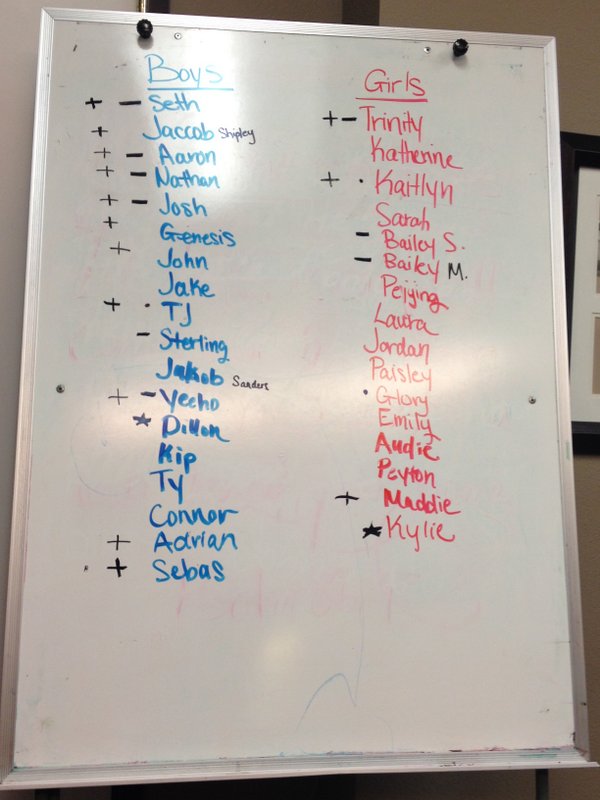 Boys
+ - Seth
+ Jaccob Shipley
+ - Aaron
+ - Nathan
+ - Josh
+ Genesis
+ John
Jake
+ · TJ
- Sterling
Jakob Sanders
+ - Yecho
★ Dillon
Kip
Ty
Connor
+ Adrian
+ Sebas
Girls
+ - Trinity
Katherine
+ · Kaitlyn
Sarah
- Bailey S.
- Bailey M.
Peijing
Laura
Jordan
Paisley
· Glory
Emily
Audie
Peyton
+ Maddie
★ Kylie